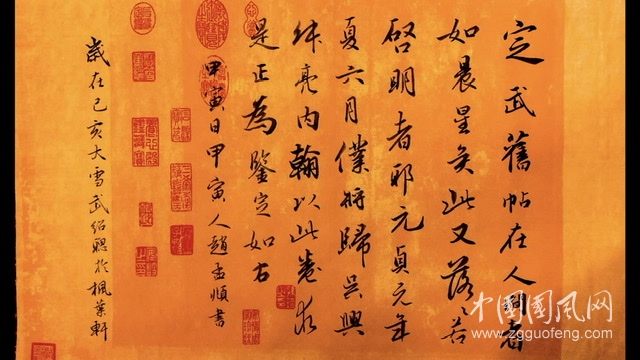 定武舊帖在人間者
如晨星矣此又落若
啓明者邪元貞元年
夏六月僕將歸吴興
仲亮内翰以此卷求
是正為鑒定如右
甲寅日甲寅人趙孟頫書
歲在己亥大雪武紹聰於楓葉軒
中国國风网
www.zgguofeng.com